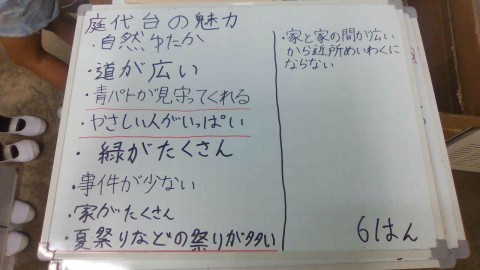 庭代台の魅力
・自然ゆたか
・道が広い
・青パトが見守ってくれる
・やさしい人がいっぱい
・緑がたくさん
・事件が少ない
・家がたくさん
・夏祭りなどの祭りが多い
・家と家の間が広い
から近所めいわくに
ならない
6はん